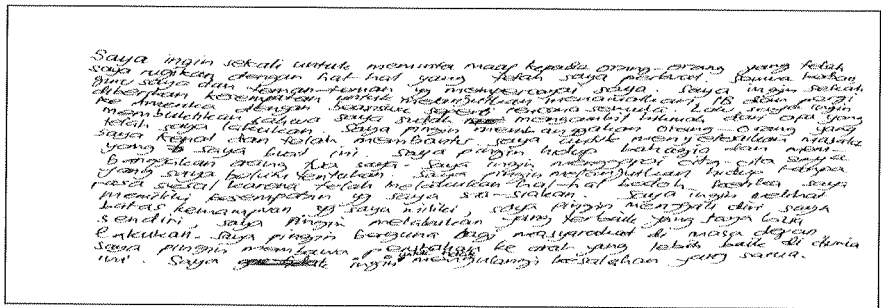 Saya ingin sekali untuk meminta maaf kepada orang-orang yang telah
saya rugikan dengan hal-hal yang telah saya perbuat. Semua bahan
guru saya dan teman-teman yg mempercayai saya. Saya ingin sekali
diberikan kesempatan untuk melanjutkan menamatkan IB dan pergi
ke Amerika dengan beasiswa seperti rencana semula. Lalu, saya ingin
membuktikan bahwa saya sudah mengambil hikmah dari apa yang
telah saya lakukan. Saya pingin membanggakan orang-orang yang
saya kenal dan telah membantu saya untuk menyelesaikan masalah
yang saya buat ini. Saya pingin hidup bahagia dan mem-
banggakan orang tua saya. Saya ingin menggapai cita-cita saya
yang saya belum tentukan. Saya pingin melanjutkan hidup tanpa
rasa sesal karena telah melakukan hal-hal bodoh ketika saya
memiliki kesempatan yg saya sia-siakan. Saya ingin melihat
batas kemampuan yg saya miliki, saya pingin menggali diri saya
sendiri. Saya pingin melakukan yang terbaik yang saya bisa
lakukan. Saya pingin berguna bagi masyarakat di masa depan
saya pingin membawa perubahan ke arah yang lebih baik di dunia
ini. Saya ingin tidak mengulangi kesalahan yang sama.